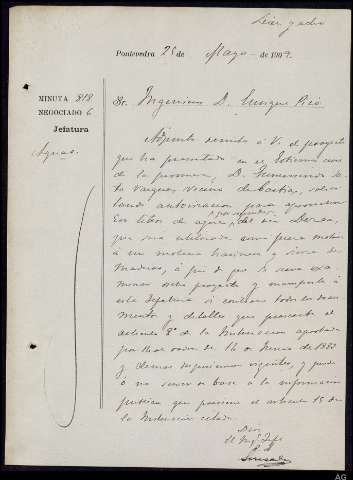 Pontevedra 25 de Mayo de 1904.
MINUTA 818
NEGOCIADO 6
Jefatura
Aguas.
Sr. Ingeniero D. Enrique Picó
Adjunto remito á V. el proyecto
que ha presentado en el Gobierno civil
de la provincia, D. Gumersindo
Vazquez vecino de solici
tando autorizacion para aprovechar
litros de agua por segundo, del rio Deza,
que sera utilizada como fuerza motriz
á un molino harinero y sierra de
maderas, á fin de que se sirva exa
minar dicho proyecto y manifieste á
esta Jefatura si contiene todos los docu
mentos y detalles que prescribe el
articulo 8º de la Instruccion aprobada
por Real orden de 14 de Junio de 1883
y demas disposiciones vigentes, y puede
ó no servir de base á la informacion
publica que previene el articulo 15 de
la Instruccion citada.
Dios
El Ingº Jefe
AG